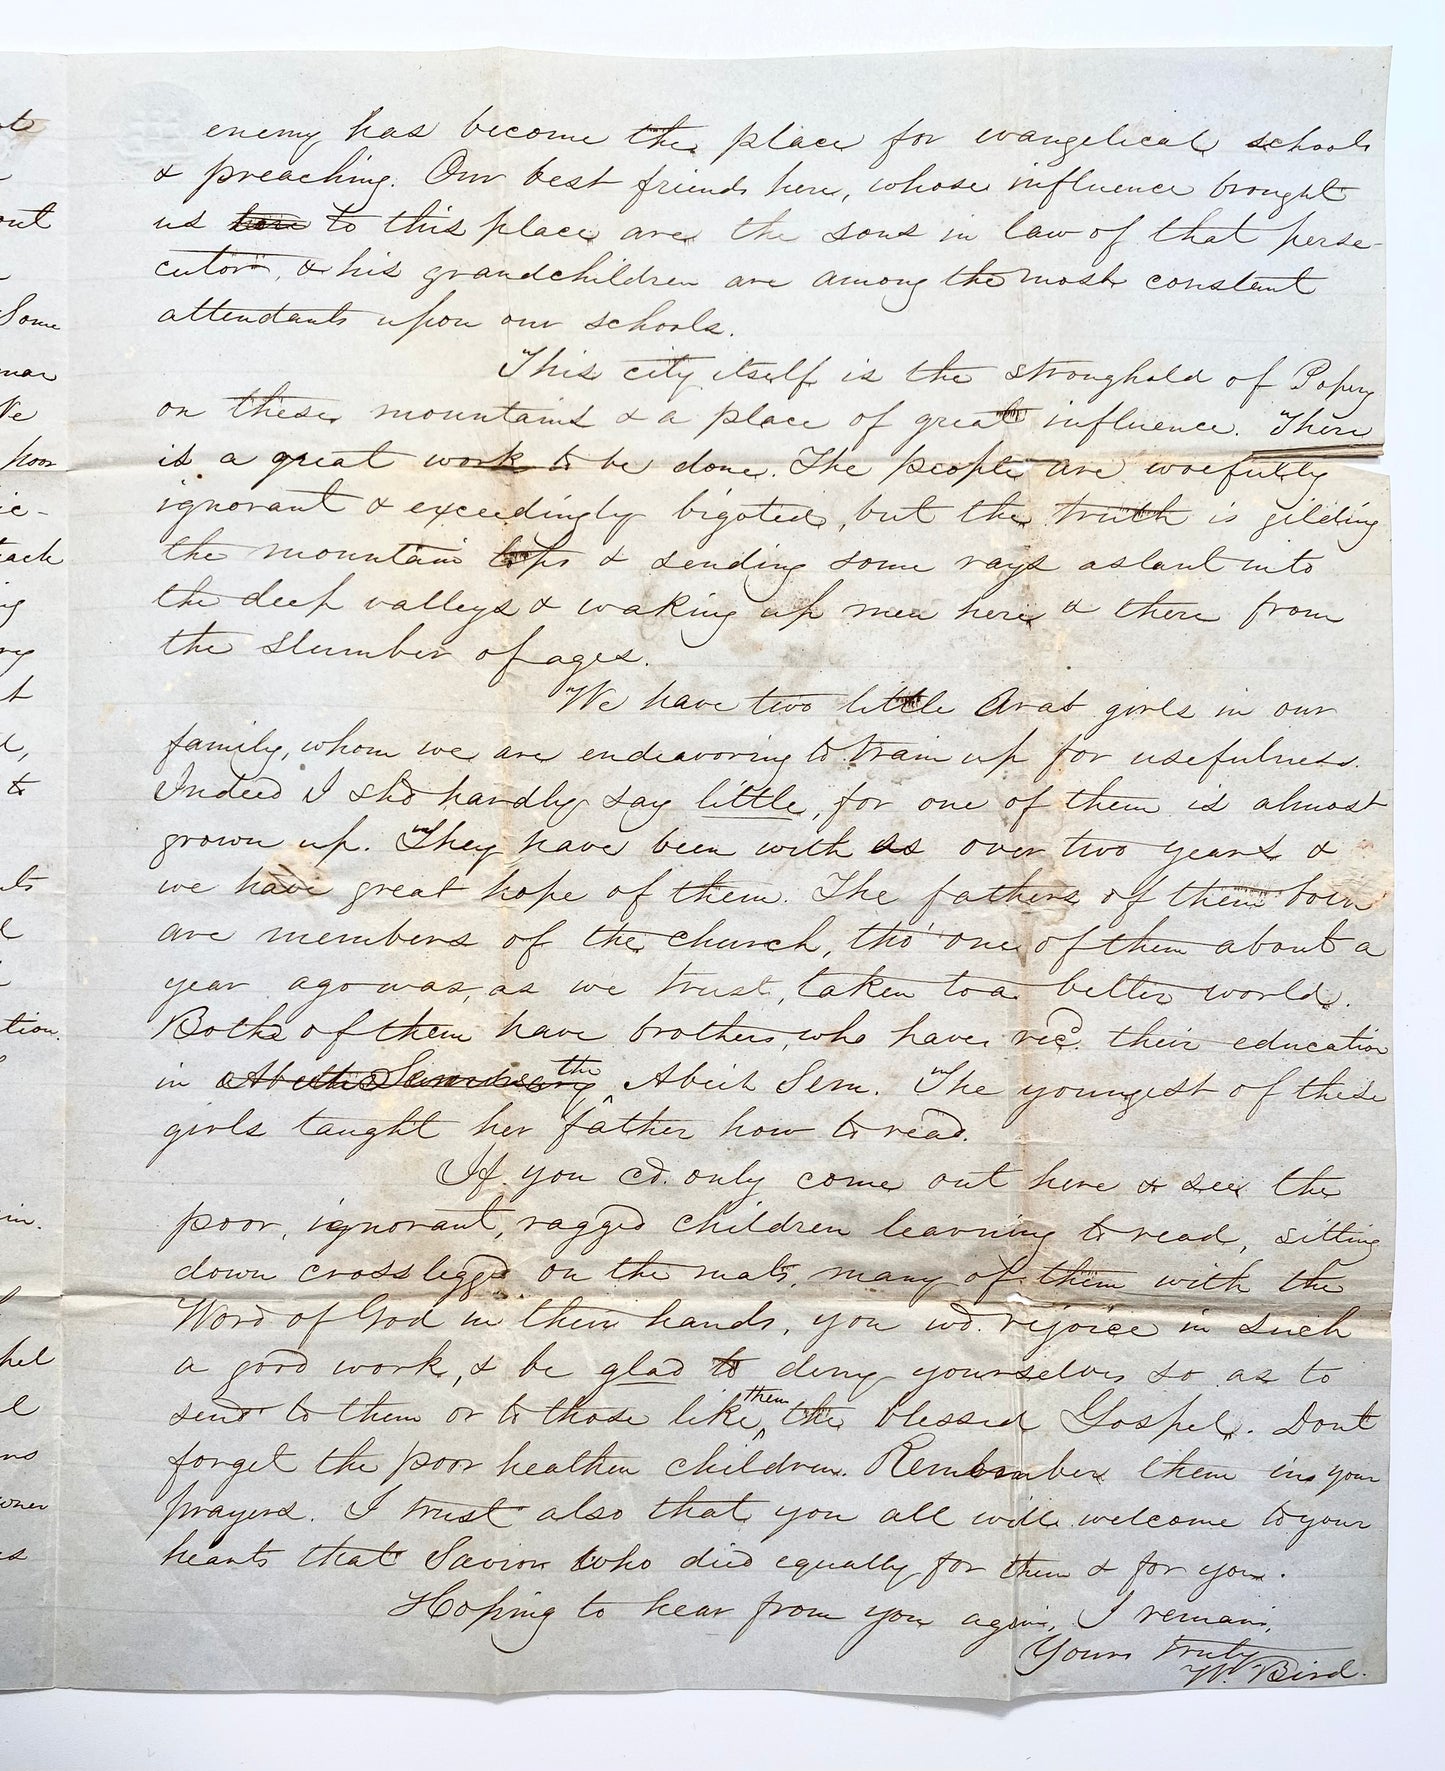 enemy has become the place for evangelical schools
& preaching. Our best friends here, whose influence brought
us here to this place are the sons in law of that perse-
cutor, & his grandchildren are among the most constant
attendants upon our schools.
This city itself is the stronghold of Popery
on these mountains & a place of great influence. There
is a great work to be done. The people are woefully
ignorant & exceedingly bigoted, but the truth is gilding
the mountain tops & sending some rays aslant into
the deep valleys & waking up men here & there from
the slumber of ages.
We have two little Arab girls in our
family, whom we are endeavoring to train up for usefulness.
Indeed I shd hardly say little, for one of them is almost
grown up. They have been with us over two years &
we have great hope of them. The fathers of them both
are members of the church, tho' one of them about a
year ago was, as we trust, taken to a better world.
Both of them have brothers, who have recd. their education
in Abeih Seminary the Abeih Sem. The youngest of these
girls taught her father how to read.
If you cd. only come out here & see the
poor, ignorant, ragged children learning to read, sitting
down crosslegged on the mats, many of them with the
Word of God in their hands, you wd. rejoice in such
a good work, & be glad to deny yourselves so as to
send to them or to those like them, the blessed Gospel. Dont
forget the poor heathen children. Remember them in your
prayers. I trust also that you all will welcome to your
hearts that Savior who died equally for them & for you.
Hoping to hear from you again, I remain,
Yours truly
W. Bird.
out
Some
We
poor
each
to
tion